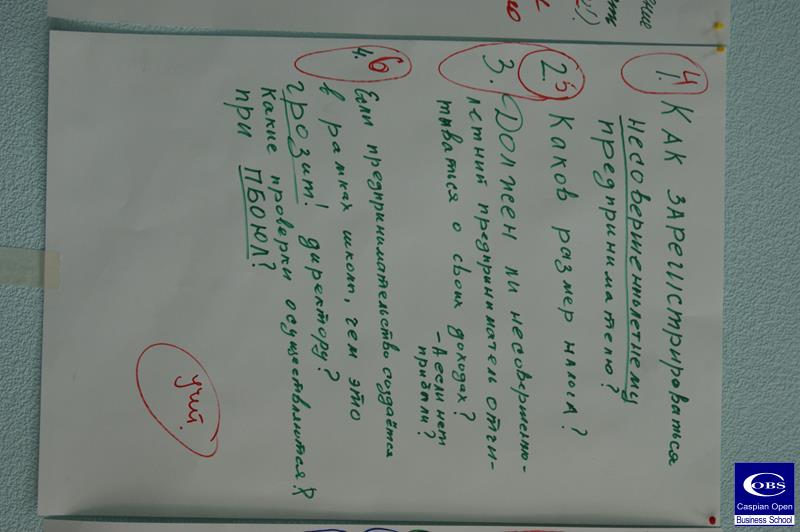 4
1. КАК ЗАРЕГИСТРИРОВАТЬСЯ
НЕСОВЕРШЕННОЛЕТНЕМУ
ПРЕДПРИНИМАТЕЛЮ?
2. 5 Каков размер налога?
3. Должен ли несовершенно-
летний предприниматель отчи-
тываться о своих доходах?
- А если нет
прибыли?
4. 6 Если предпринимательство создаётся
в рамках школы, чем это
грозит! директору?
Какие проверки осуществляются
при ПБОЮЛ?
учит.
COBS
Caspian Open
Business School